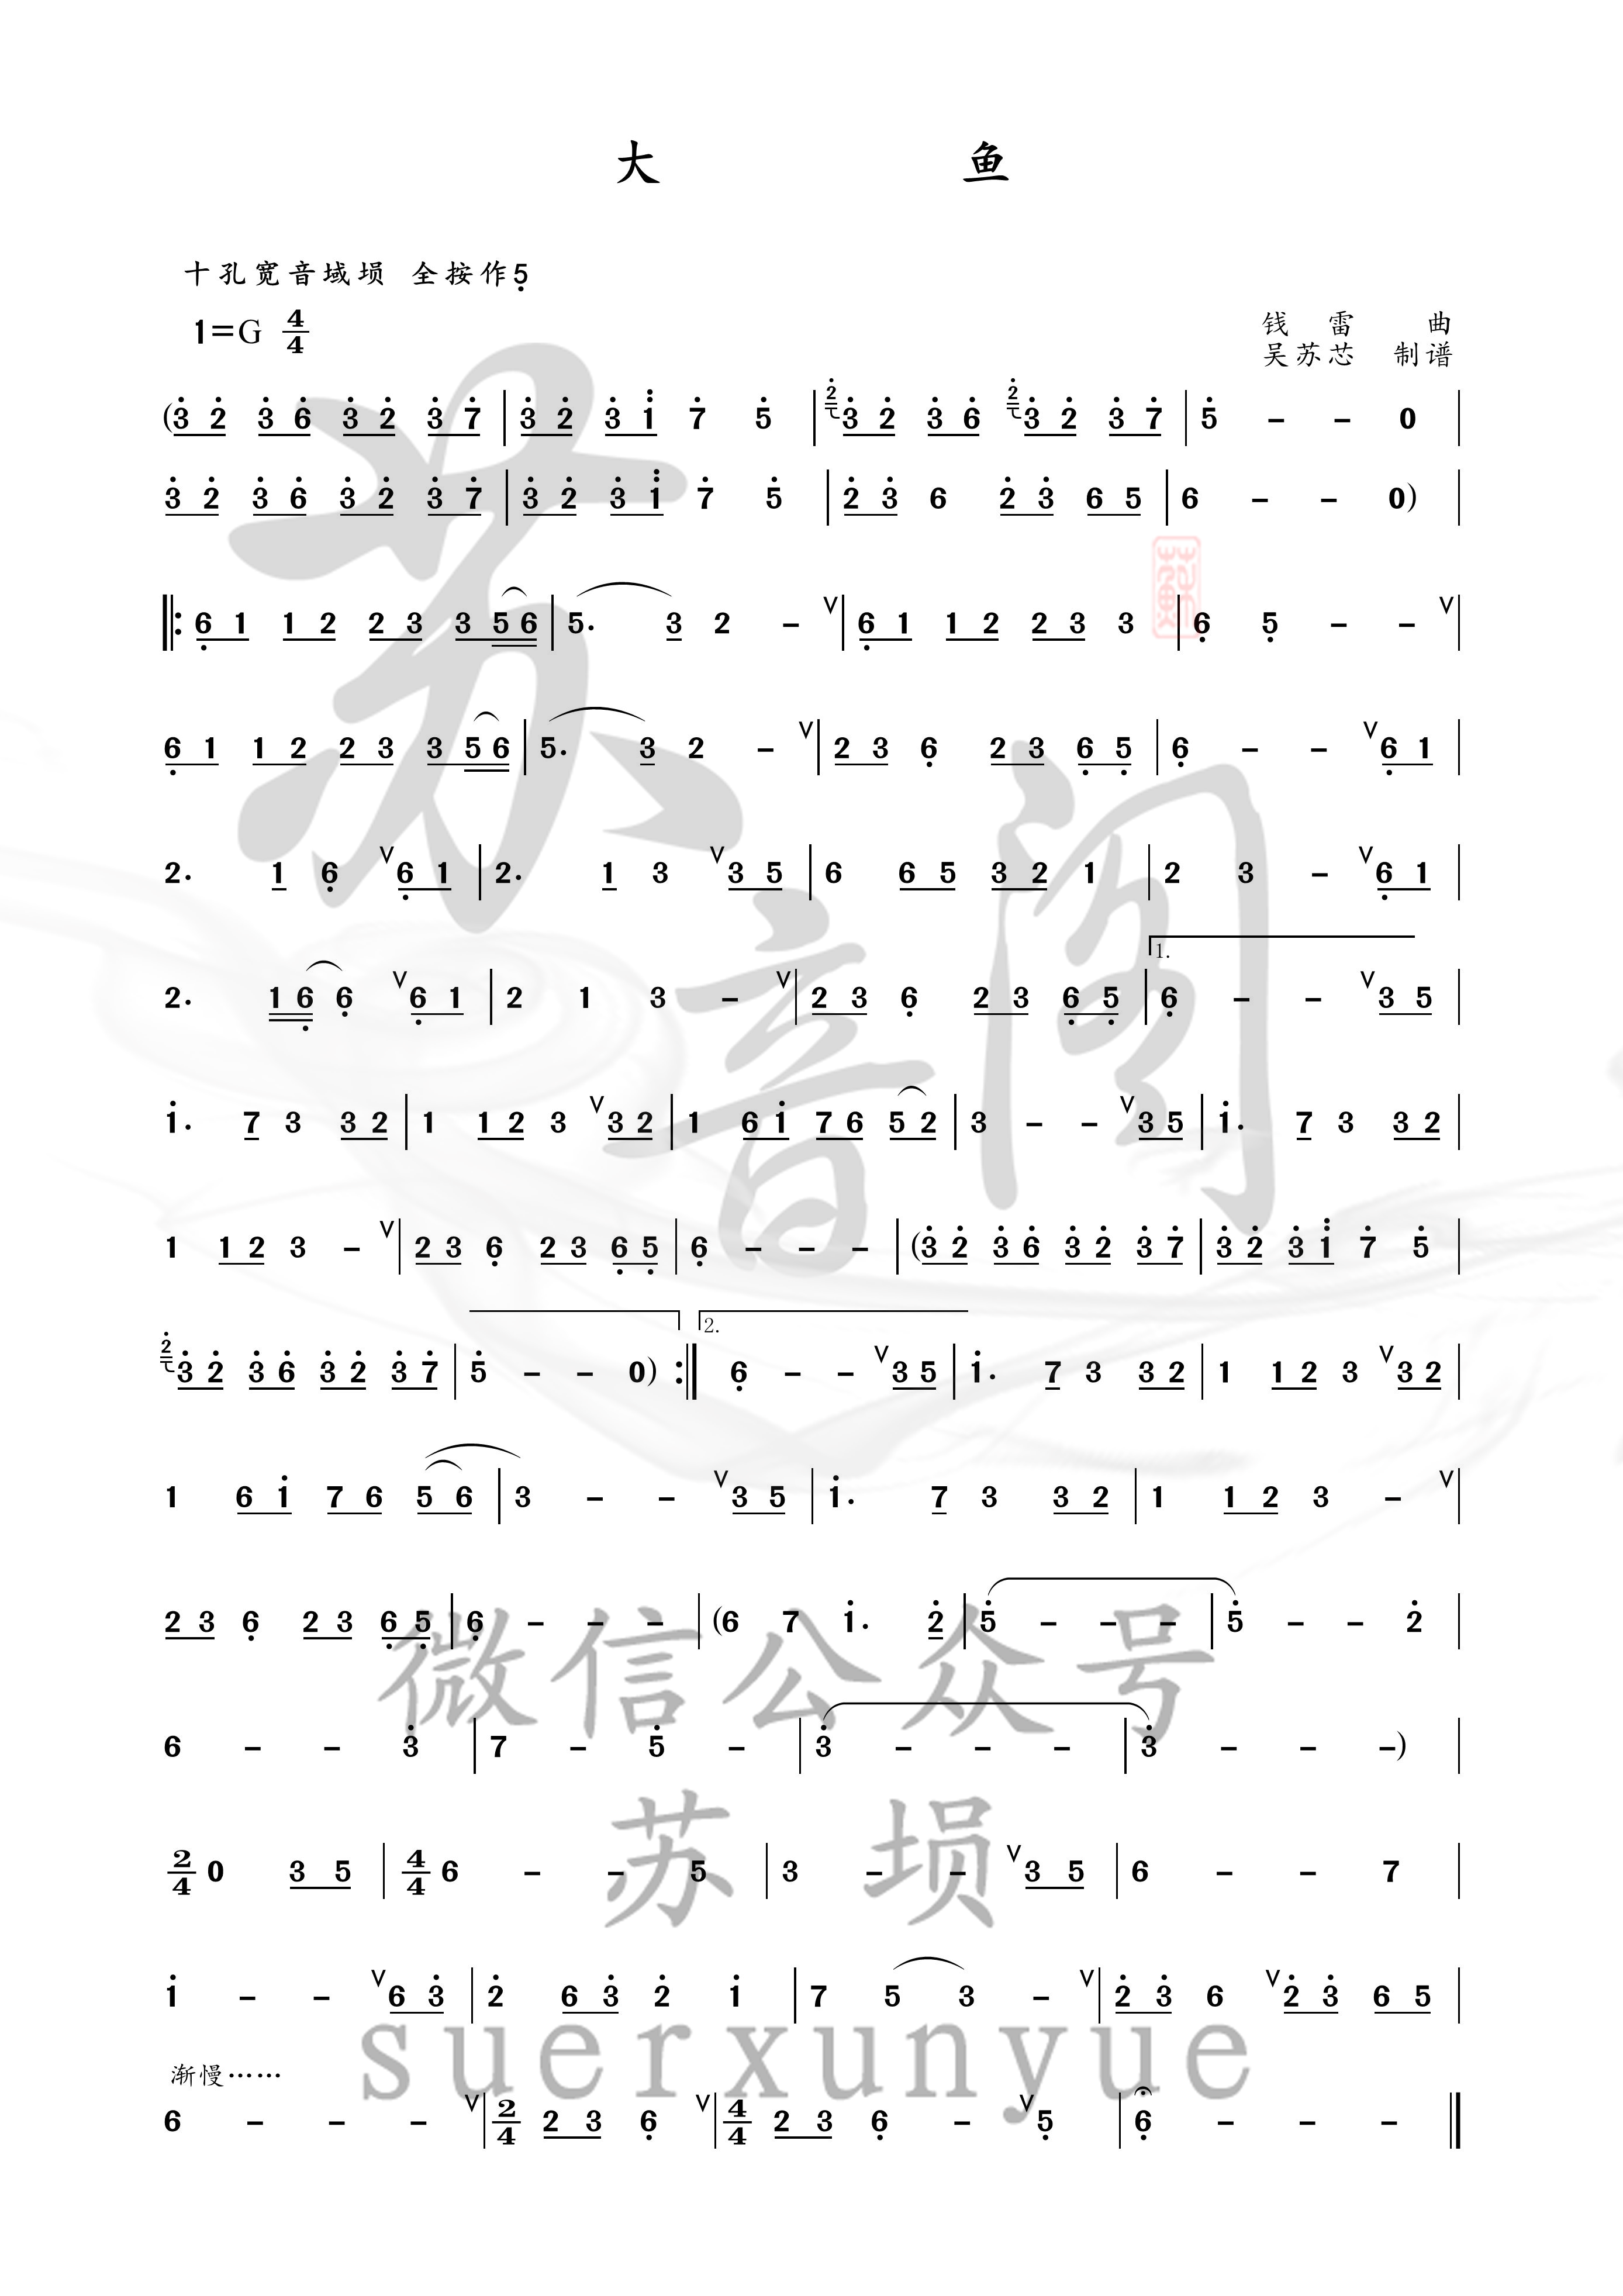 大 鱼
十孔宽音域埙 全按作5̣
1=G 4/4
钱 雷 曲
吴苏芯 制谱
(3̇ 2̇ 3̇ 6̇ 3̇ 2̇ 3̇ 7̇ | 3̇ 2̇ 3̇ 1̈ 7̇ 5̇ | 2̇ 3̇ 2̇ 3̇ 6̇ 2̇ 3̇ 2̇ 3̇ 7̇ | 5̇ – – 0 |
3̇ 2̇ 3̇ 6̇ 3̇ 2̇ 3̇ 7̇ | 3̇ 2̇ 3̇ 1̈ 7̇ 5̇ | 2̇ 3̇ 6 2̇ 3̇ 6 5 | 6 – – 0) |
‖: 6̣ 1 1 2 2 3 3 5 6 | 5. 3 2 – ∨ | 6̣ 1 1 2 2 3 3 | 6̣ 5̣ – – ∨ |
6̣ 1 1 2 2 3 3 5 6 | 5. 3 2 – ∨ | 2 3 6̣ 2 3 6̣ 5̣ | 6̣ – – ∨ 6̣ 1 |
2. 1 6̣ ∨ 6̣ 1 | 2. 1 3 ∨ 3 5 | 6 6 5 3 2 1 | 2 3 – ∨ 6̣ 1 |
2. 1 6̣ 6̣ ∨ 6̣ 1 | 2 1 3 – ∨ | 2 3 6̣ 2 3 6̣ 5̣ | 1. 6̣ – – ∨ 3 5 |
1̇. 7 3 3 2 | 1 1 2 3 ∨ 3 2 | 1 6 1̇ 7 6 5 2 | 3 – – ∨ 3 5 | 1̇. 7 3 3 2 |
1 1 2 3 – ∨ | 2 3 6̣ 2 3 6̣ 5̣ | 6̣ – – – | (3̇ 2̇ 3̇ 6̇ 3̇ 2̇ 3̇ 7̇ | 3̇ 2̇ 3̇ 1̈ 7̇ 5̇ |
2̇ 3̇ 2̇ 3̇ 6̇ 3̇ 2̇ 3̇ 7̇ | 5̇ – – 0) :‖ 2. 6̣ – – ∨ 3 5 | 1̇. 7 3 3 2 | 1 1 2 3 ∨ 3 2 |
1 6 1̇ 7 6 5 6 | 3 – – ∨ 3 5 | 1̇. 7 3 3 2 | 1 1 2 3 – ∨ |
2 3 6̣ 2 3 6̣ 5̣ | 6̣ – – – | (6 7 1̇. 2̇ | 5̇ – – – | 5̇ – – 2̇ |
6 – – 3̇ | 7 – 5̇ – | 3̇ – – – | 3̇ – – –) |
2/4 0 3 5 | 4/4 6 – – 5 | 3 – – ∨ 3 5 | 6 – – 7 |
1̇ – – ∨ 6 3̇ | 2̇ 6 3̇ 2̇ 1̇ | 7 5 3 – ∨ | 2̇ 3̇ 6 ∨ 2̇ 3̇ 6 5 |
渐慢……
6 – – – ∨ | 2/4 2 3 6̣ ∨ | 4/4 2 3 6̣ – ∨ 5̣ | 6̣ – – – ‖
苏音阁
微信公众号
苏 埙
suerxunyue